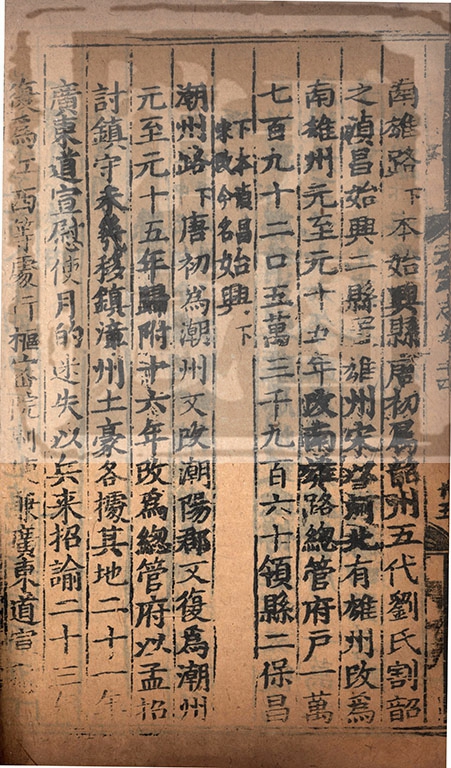 南雄路下本始興縣唐初爲韶州五代劉氏割韶
之湞昌始興二縣置雄州宋以河北有雄州改爲
南雄州元至元十五年改南雄路總管府户一萬
七百九十二口五萬三千九百六十領縣二保昌
下本湞昌
宋改今名始興下
潮州路下唐初爲潮州又改潮陽郡又復爲潮州
元至元十五年歸附十六年改爲總管府以孟招
討鎮守未幾移鎮漳州土豪各據其地二十一年
廣東道宣慰使月的迷失以兵来招諭二十三年
復爲江西等處行樞密院副使兼廣東道宣